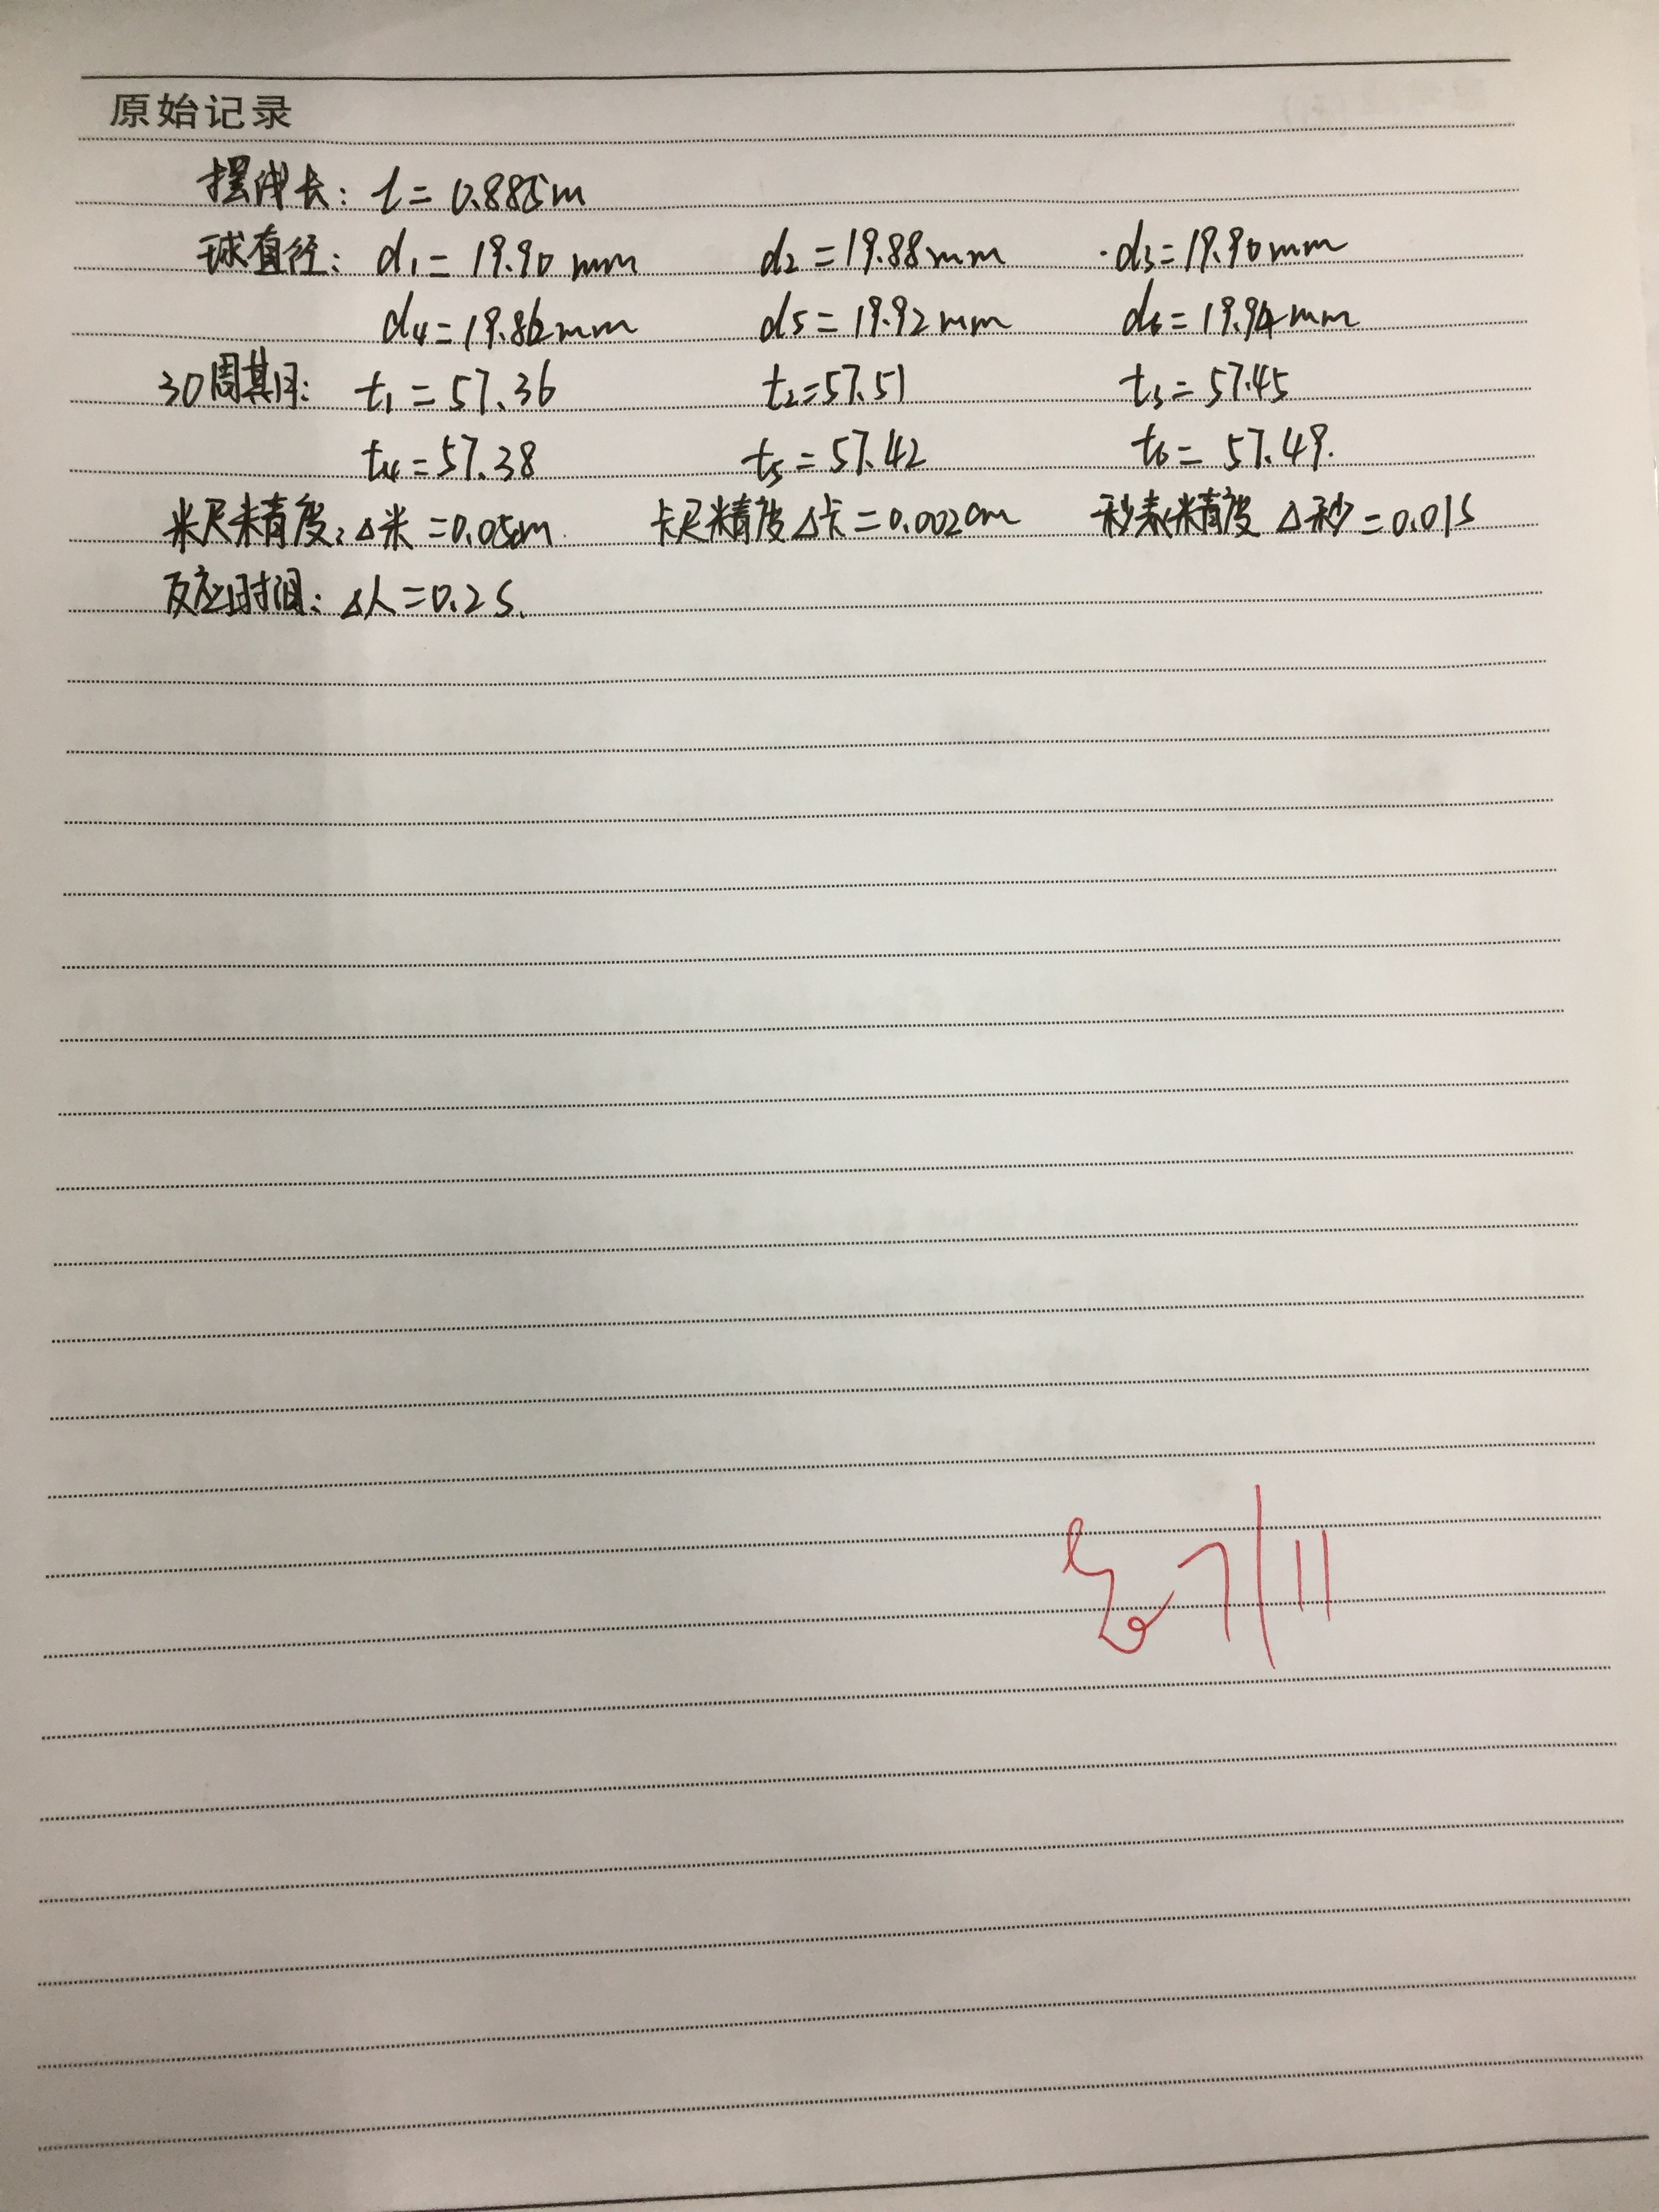 原始记录
摆线长: l = 0.885m
球直径: d₁ = 19.90 mm d₂ = 19.88mm d₃ = 19.90mm
d₄ = 19.86mm d₅ = 19.92mm d₆ = 19.94mm
30周期: t₁ = 57.36 t₂ = 57.51 t₃ = 57.45
t₄ = 57.38 t₅ = 57.42 t₆ = 57.49.
米尺精度: Δ米 = 0.05cm. 卡尺精度Δ卡 = 0.002cm 秒表精度 Δ秒 = 0.01s
反应时间: Δ人 = 0.2s.
7/11